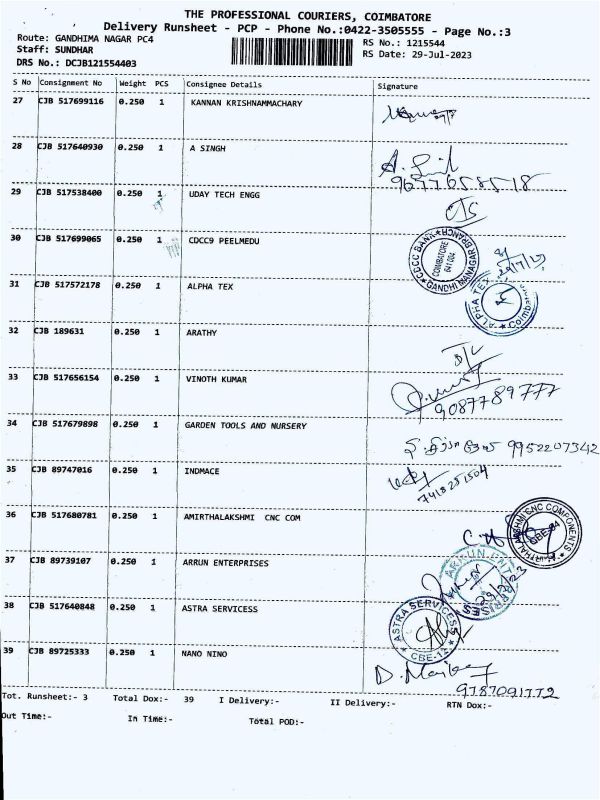 THE PROFESSIONAL COURIERS, COIMBATORE
Delivery Runsheet - PCP - Phone No.:0422-3505555 - Page No.:3
Route: GANDHIMA NAGAR PC4 RS No.: 1215544
Staff: SUNDHAR RS Date: 29-Jul-2023
DRS No.: DCJB121554403
S No Consignment No Weight PCS Consignee Details Signature
27 CJB 517699116 0.250 1 KANNAN KRISHNAMMACHARY
28 CJB 517640930 0.250 1 A SINGH
9677658518
29 CJB 517538400 0.250 1 UDAY TECH ENGG
30 CJB 517699065 0.250 1 CDCC9 PEELMEDU
CDCC BANK GANDHI MANAGAR BRANCH COIMBATORE 641 004
31 CJB 517572178 0.250 1 ALPHA TEX
ALPHA TEX Coimbatore
32 CJB 189631 0.250 1 ARATHY
D/L
33 CJB 517656154 0.250 1 VINOTH KUMAR
9087789777
34 CJB 517679898 0.250 1 GARDEN TOOLS AND NURSERY
9952207342
35 CJB 89747016 0.250 1 INDMACE
7418251504
36 CJB 517680781 0.250 1 AMIRTHALAKSHMI CNC COM
CNC COMPONENTS CBE-04
37 CJB 89739107 0.250 1 ARRUN ENTERPRISES
ARRUN ENTERPRISES
29/7/23
38 CJB 517640848 0.250 1 ASTRA SERVICESS
ASTRA SERVICESS CBE-12
39 CJB 89725333 0.250 1 NANO NINO
9787091772
Tot. Runsheet:- 3 Total Dox:- 39 I Delivery:- II Delivery:- RTN Dox:-
Out Time:- In Time:- Total POD:-